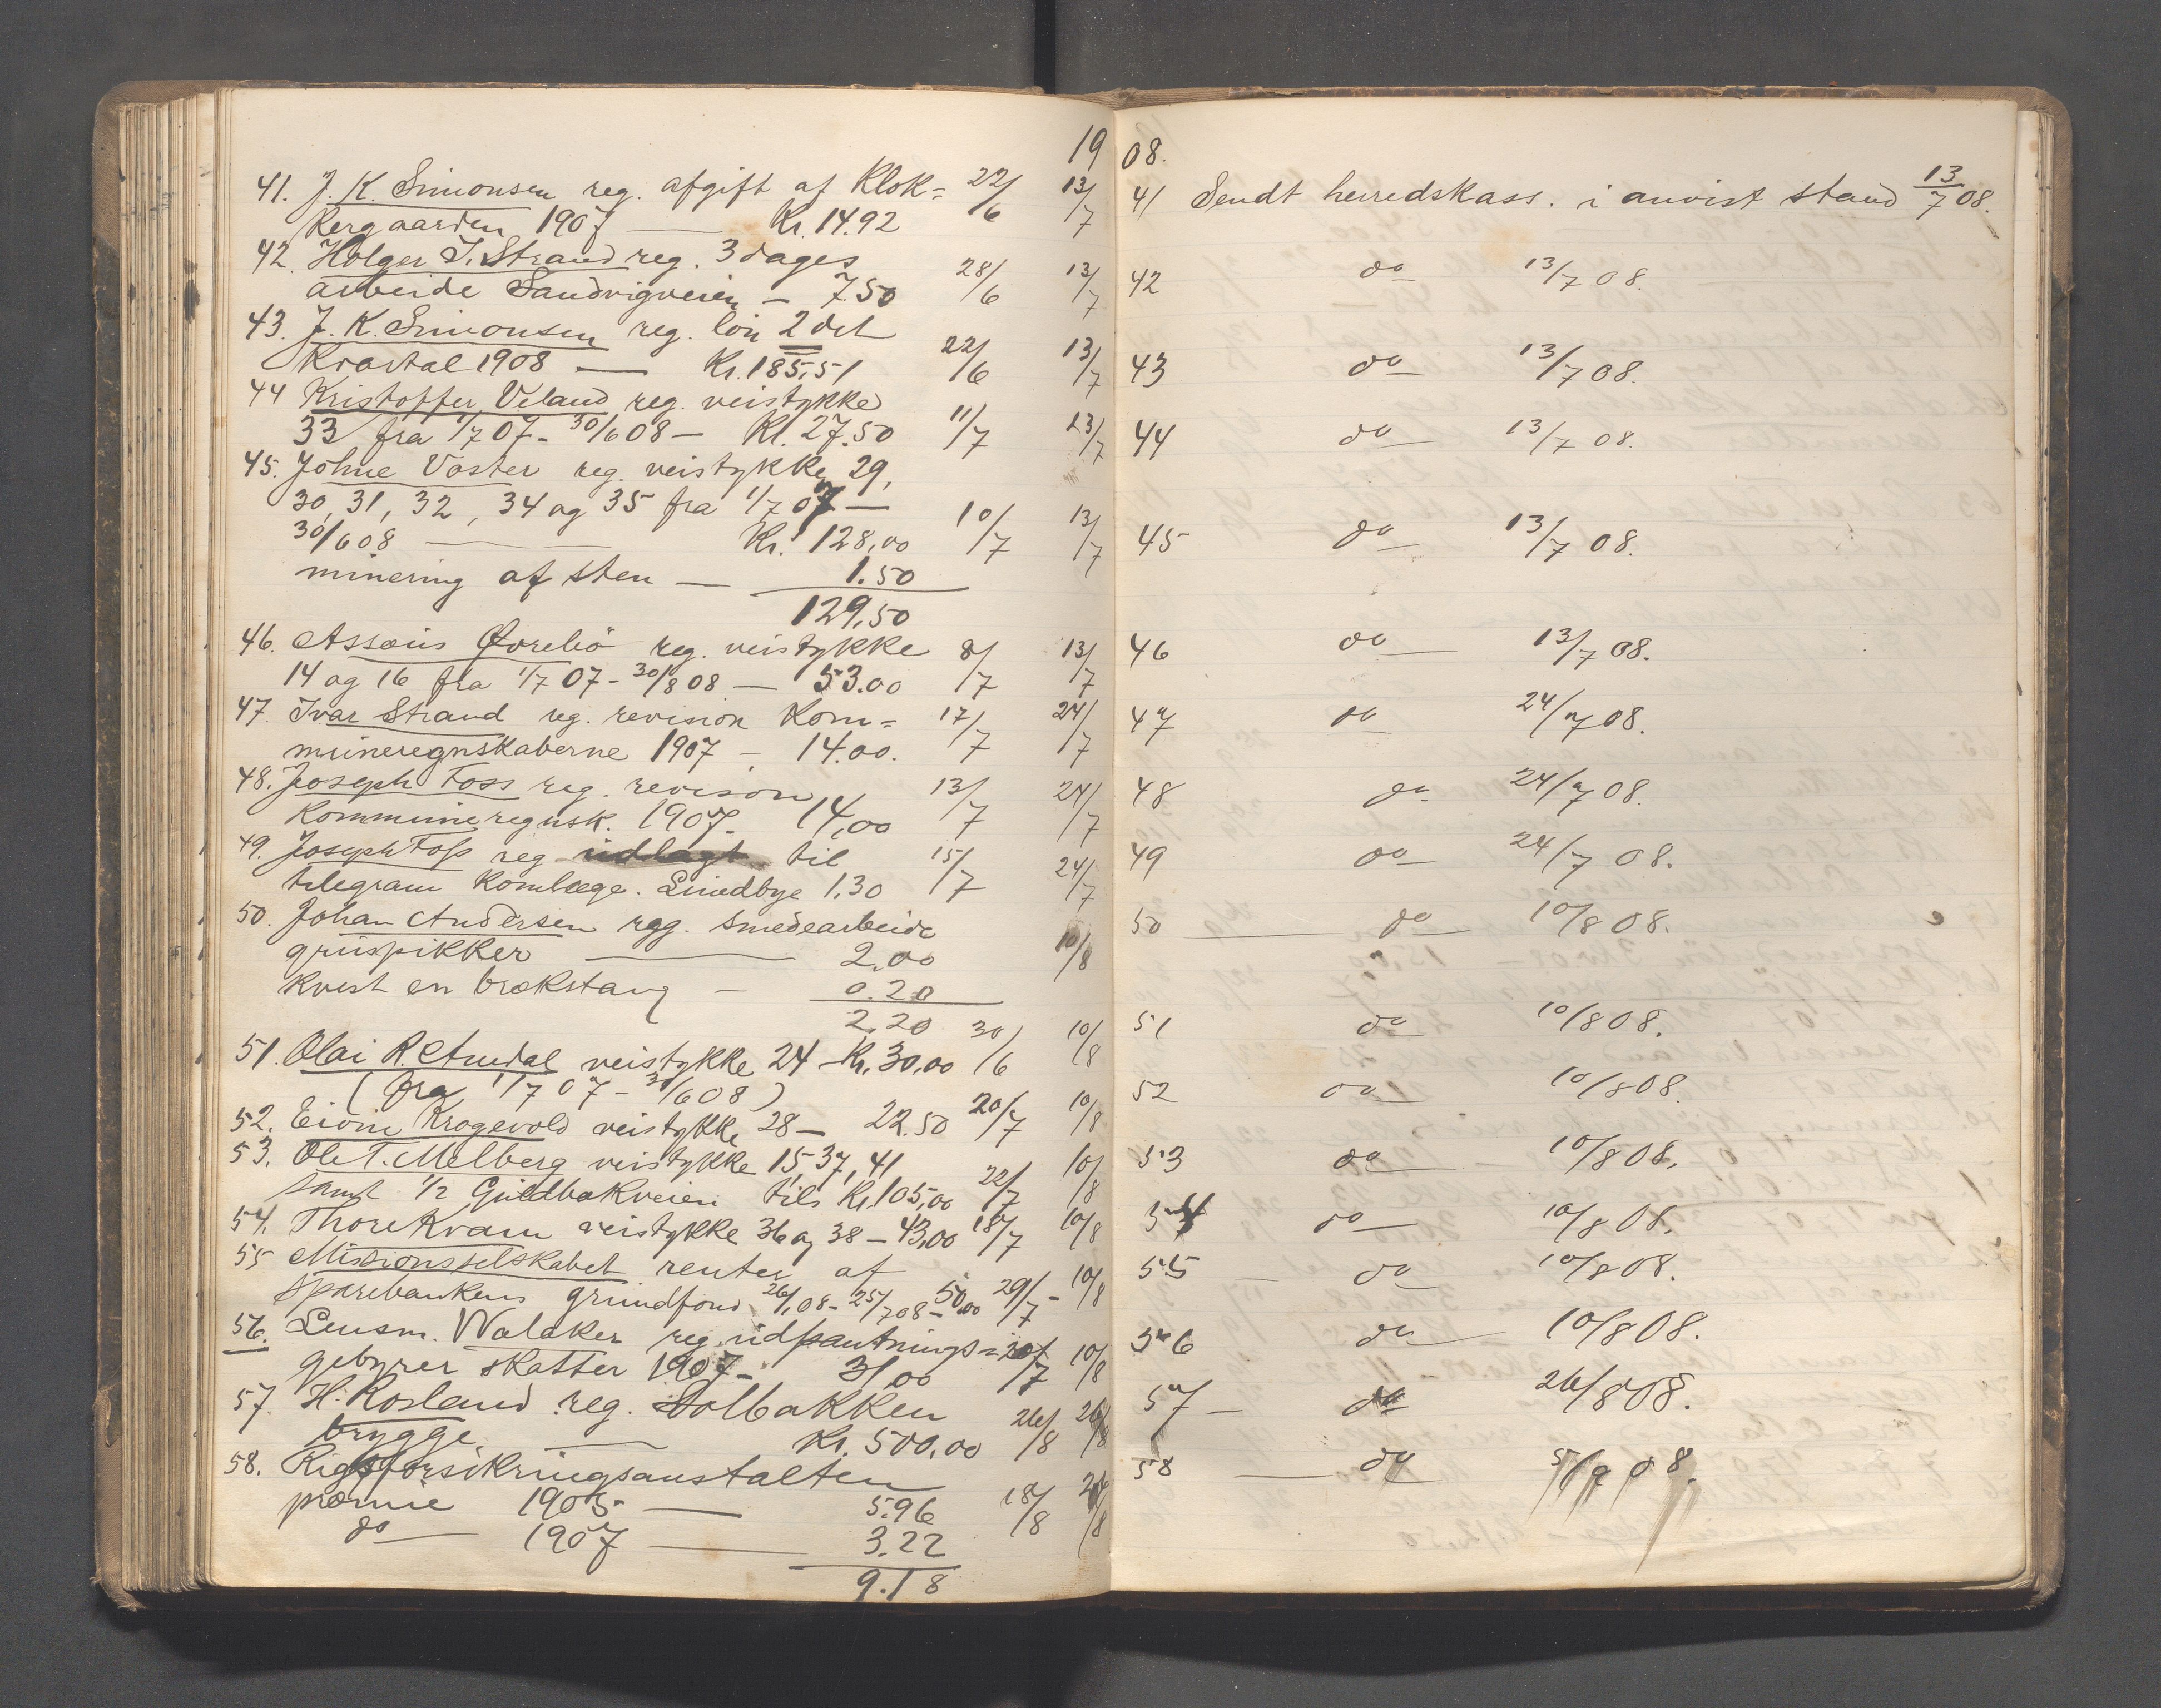 19
41. J. K. Simonsen reg. afgift af Klok= 22/6 13/7
kergaarden 1907 — Kr. 14.92
42. Holger I. Strand reg. 3 dages
arbeide Sandvigveien — 7 50 28/6 13/7
43. J. K. Simonsen reg. løn 2det
Kvartal 1908 — Kr. 185,51 22/6 13/7
44 Kristoffer Veland reg. veistykke
33 fra 1/7 07 - 30/6 08 — Kr. 27.50 11/7 13/7
45. Johne Vaster reg. veistykke 29,
30, 31, 32, 34 og 35 fra 1/7 07 —
30/6 08 — Kr. 128,00 10/7 13/7
minering af sten — 1.50
129,50
46. Assæus Øvrebö reg. veistykke 8/7 13/7
14 og 16 fra 1/7 07 - 30/8 08 — 53.00
47. Ivar Strand reg. revision Kom= 17/7 24/7
muneregnskaberne 1907 — 14.00.
48. Joseph Foss reg. revison 13/7 24/7
Kommuneregnsk. 1907 - 14,00
49. Joseph Foss reg udlagt til 15/7 24/7
telegram Komlæge. Lindbye 1.30
50. Johan Andersen reg. smedearbeide
gruspikker — 2.00 10/8
kvest en brækstang — 0.20
2,20
51. Olai R. Aredal veistykke 24 — Kr. 30,00 30/6 10/8
(fra 1/7 07 - 30/6 08)
52. Eivin Krogevold veistykke 28 — 22.50 20/7 10/8
53. Ole T. Melberg veistykke 15, 37, 41 22/7 10/8
samt 1/2 Guldbakveien tils Kr. 105,00
54. Thore Kvam veistykke 36 og 38 — 43,00 18/7 10/8
55 Missionsselskabet renter af
sparebankens grundfond 26/1 08 - 25/7 08 — 50,00 29/7 - 10/8
56. Lensm. Walaker reg. udpantnings= 20/7 10/8
gebyrer skatter 1907 - 31,00
57. H. Rosland reg. Dolbakken
brygge — Kr. 500,00 26/8 26/8
58. Rigsforsikringsanstalten
præmie 1905 — 5.96 18/8 26/8
do — 1907 — 3.22
9.18
08.
41 Sendt herredskass. i anvist stand 13/7 08.
42 do 13/7 08.
43 do 13/7 08.
44 do 13/7 08.
45 do 13/7 08.
46 do 13/7 08.
47 do 24/7 08.
48 do 24/7 08.
49 do 24/7 08.
50 — do 10/8 08.
51 do 10/8 08.
52 do 10/8 08.
53 do 10/8 08.
54 do 10/8 08.
55 — do 10/8 08.
56 do 10/8 08.
57 — do 26/8 08.
58 — do 5/9 08.